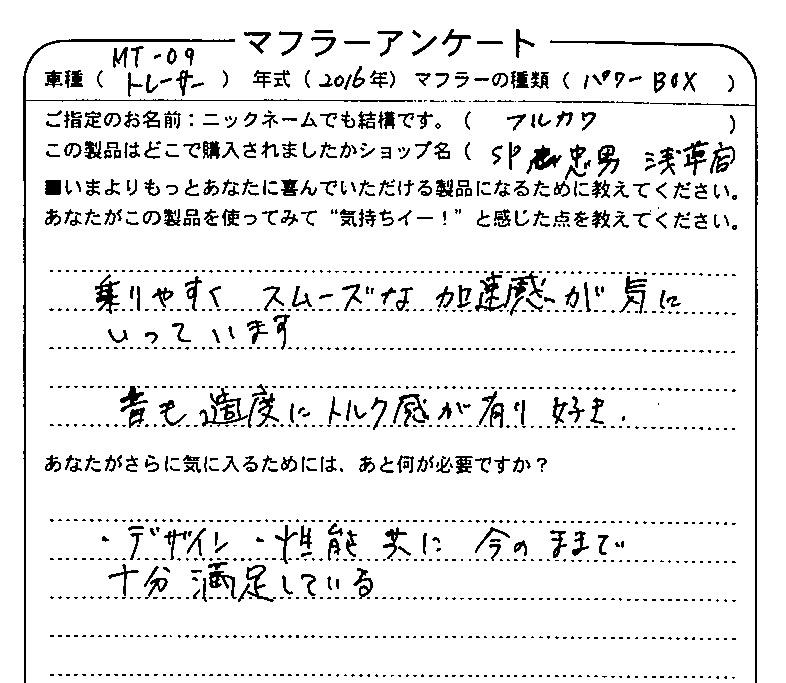 マフラーアンケート
MT-09
車種（ トレーサー ） 年式（ 2016年） マフラーの種類（ パワーBOX ）
ご指定のお名前：ニックネームでも結構です。（ フルカワ ）
この製品はどこで購入されましたかショップ名（ SP 忠男 浅草店
■いまよりもっとあなたに喜んでいただける製品になるために教えてください。
あなたがこの製品を使ってみて“気持ちイー！”と感じた点を教えてください。
乗りやすく スムーズな 加速感が 気に
いって います
音も 適度に トルク感が 有り 好き.
あなたがさらに気に入るためには、あと何が必要ですか？
・デザイン・性能 共に 今のままで
十分 満足している